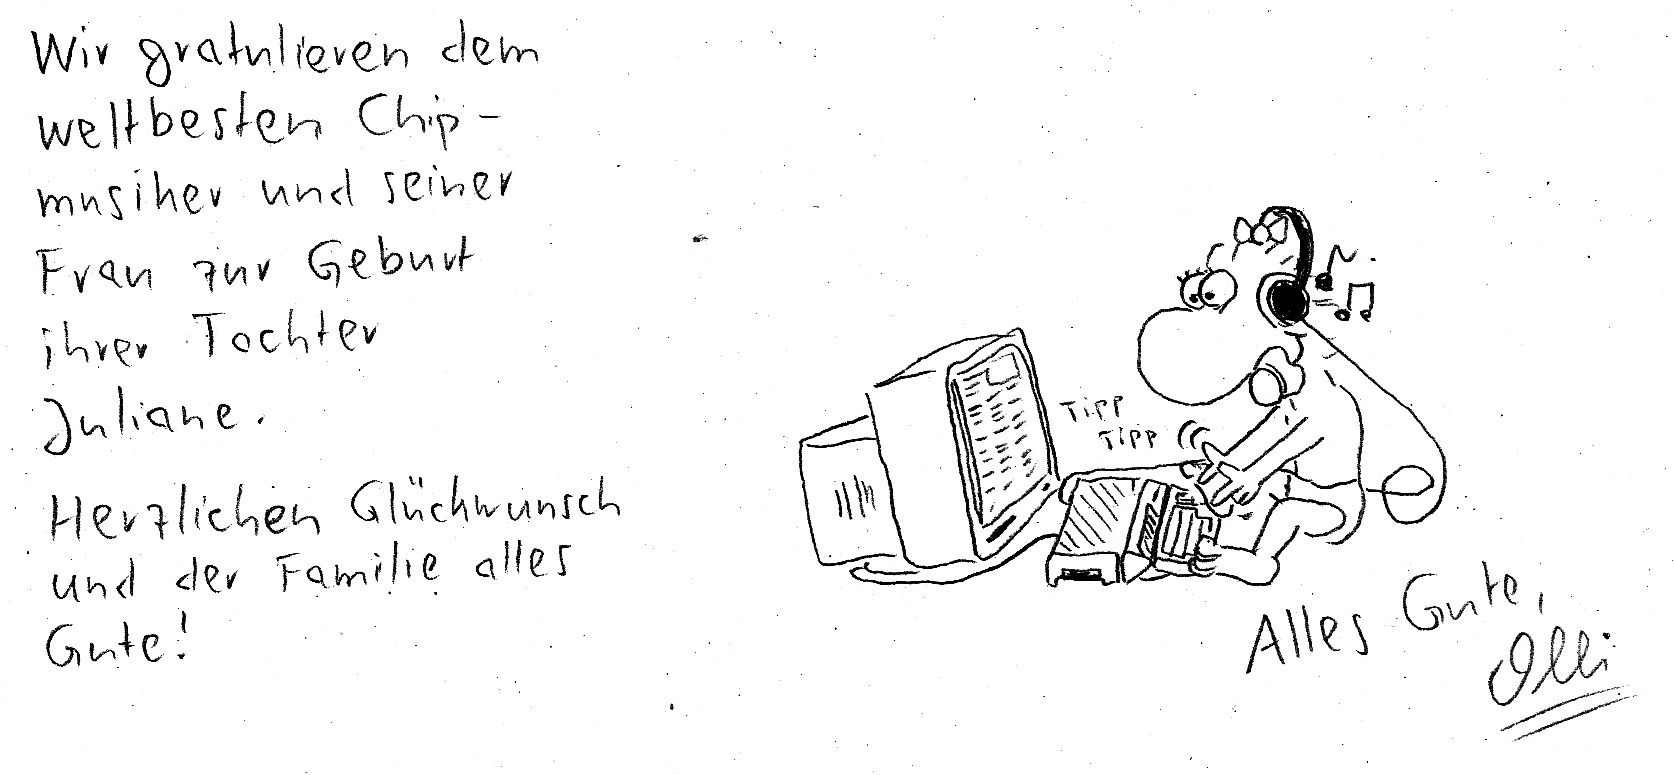 Wir gratulieren dem
weltbesten Chip-
musiker und seiner
Frau zur Geburt
ihrer Tochter
Juliane.
Herzlichen Glückwunsch
und der Familie alles
Gute!
Tipp
Tipp
Alles Gute,
Olli